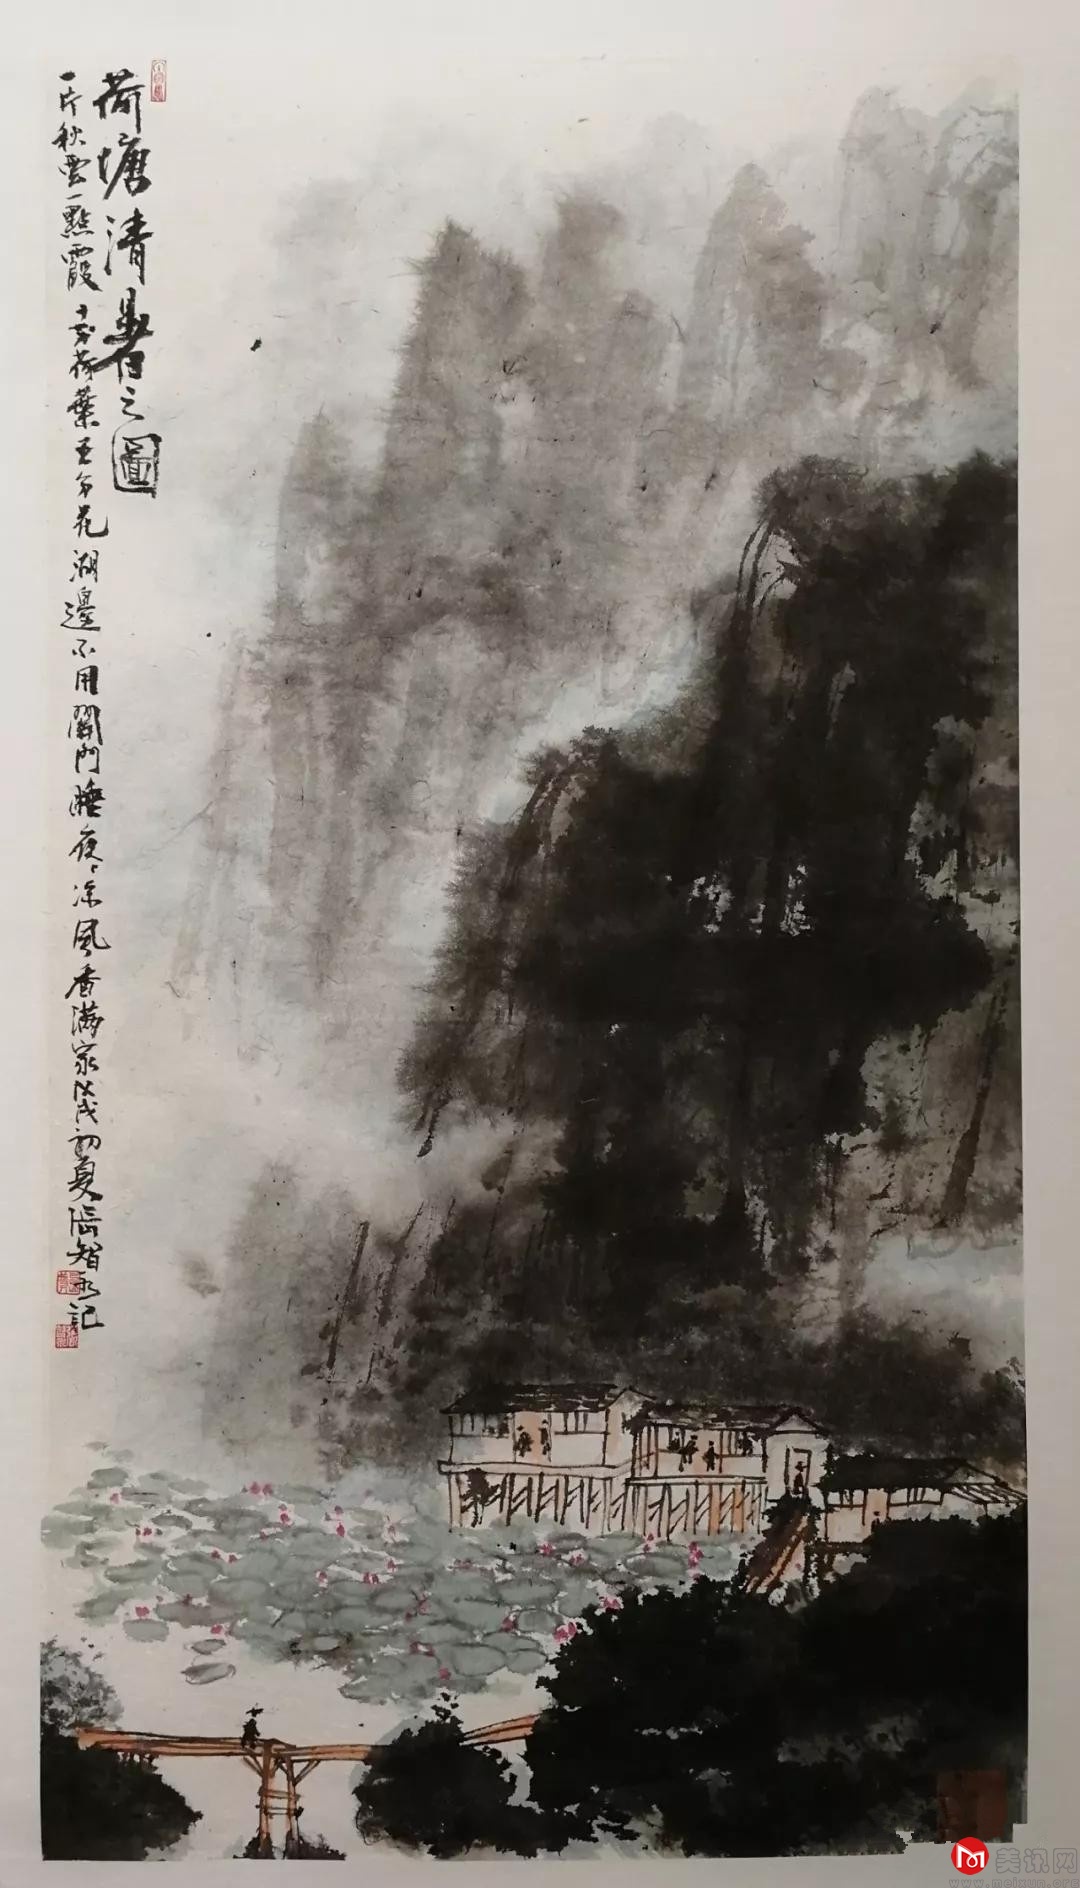 荷塘清暑之圖
一片秋雲一點霞十分荷葉五分花湖邊不用關門睡夜〻涼風香滿家戊戌初夏張智記
美讯网
www.meixun.org